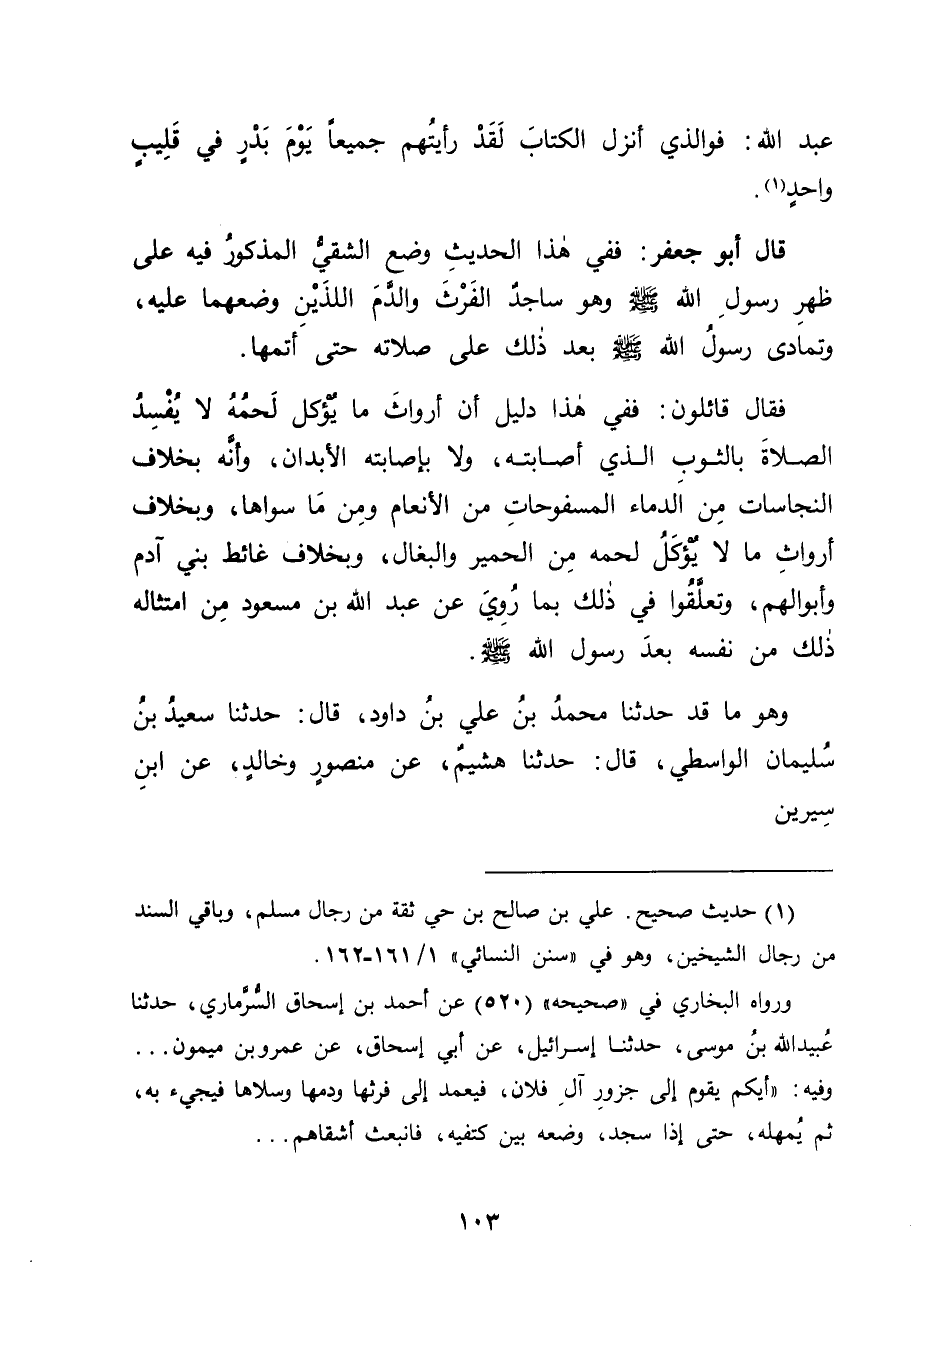 عبد الله: فوالذي أنزل الكتابَ لَقَدْ رأيتُهم جميعاً يَوْمَ بَدْرٍ في قَلِيبٍ
واحدٍ(١).
قال أبو جعفر: ففي هٰذا الحديثِ وضع الشقيُّ المذكورُ فيه على
ظهرِ رسولِ الله ﷺ وهو ساجدٌ الفَرْثَ والدَّمَ اللذَيْنِ وضعهما عليه،
وتمادى رسولُ الله ﷺ بعد ذٰلك على صلاته حتى أتمها.
فقال قائلون: ففي هٰذا دليل أن أرواثَ ما يُؤكل لَحمُهُ لا يُفْسِدُ
الصلاةَ بالثوبِ الذي أصابته، ولا بإصابته الأبدان، وأنَّه بخلاف
النجاسات مِن الدماء المسفوحاتِ من الأنعام ومِن مَا سواها، وبخلاف
أرواثِ ما لا يُؤكَلُ لحمه مِن الحمير والبغال، وبخلاف غائط بني آدم
وأبوالهم، وتعلَّقُوا في ذٰلك بما رُوِيَ عن عبد الله بن مسعود مِن امتثاله
ذٰلك من نفسه بعدَ رسول الله ﷺ.
وهو ما قد حدثنا محمدُ بنُ علي بنُ داود، قال: حدثنا سعيدُ بنُ
سُليمان الواسطي، قال: حدثنا هشيمٌ، عن منصورٍ وخالدٍ، عن ابنِ
سِيرين
(١) حديث صحيح. علي بن صالح بن حي ثقة من رجال مسلم، وباقي السند
من رجال الشيخين، وهو في «سنن النسائي» ١/ ١٦١-١٦٢.
ورواه البخاري في «صحيحه» (٥٢٠) عن أحمد بن إسحاق السُّرَّماري، حدثنا
عُبيدالله بنُ موسى، حدثنا إسرائيل، عن أبي إسحاق، عن عمرو بن ميمون...
وفيه: «أيكم يقوم إلى جزورِ آلِ فلان، فيعمد إلى فرثها ودمها وسلاها فيجيء به،
ثم يُمهله، حتى إذا سجد، وضعه بين كتفيه، فانبعث أشقاهم...
١٠٣